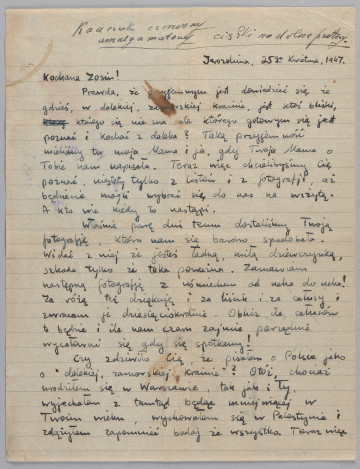 Kauczuk czerwony
amalgamatowy
ciężki na dolne protezy
Jerozolima, 25go Kwietnia, 1947.
Kochana Zosiu!
Prawda, że przyjemnym jest dowiedzieć się że
gdzieś, w dalekiej, zamorskiej krainie, jest ktoś bliski,
którego się nie zna ale którego gotowym się jest
poznać i kochać z daleka? Taką przyjemność
mieliśmy tu moja Mama i ja, gdy Twoja Mama o
Tobie nam napisała. Teraz więc chcielibyśmy Cię
poznać, niestety tylko z listów i z fotografji, aż
będziecie mogli wybrać się do nas na wizytę.
A kto wie kiedy to nastąpi.
Właśnie parę dni temu dostaliśmy Twoją
fotografję, która nam się bardzo spodobała.
Widać z niej że jesteś ładną, miłą dziewczynką,
szkoda tylko że taka poważna. Zamawiam
następną fotografję z uśmiechem od ucha do ucha!
Za różę też dziękuję i za liścik i za całusy i
zwracam je dziesięciokrotnie. Oblicz ile całusów
to będzie i ile nam czasu zajmie porządne
wycałować się gdy się spotkamy!
Czy zdziwiło Cię, że pisałem o Polsce jako
o "dalekiej, zamorskiej krainie"? Otóż, chociaż
urodziłem się w Warszawie, tak jak i Ty,
wyjechałem z tamtąd będąc mniejwięcej w
Twoim wieku, wychowałem się w Palestynie i
zdążyłem zapomnieć bodaj że wszystko. Teraz więc